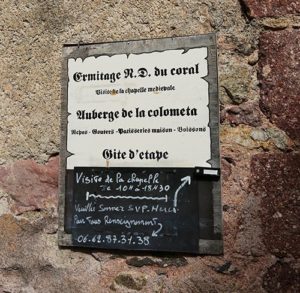 Ermitage N.D. du coral
Visite de la chapelle medievale
Auberge de la colometa
Repas - Gouters - Patisseries maison - Boissons
Gite d'etape
Visite de la chapelle
10h à 18h30
Veuillez Sonner S.V.P. Merci
Pour Tous Renseignements
06.62.87.31.38